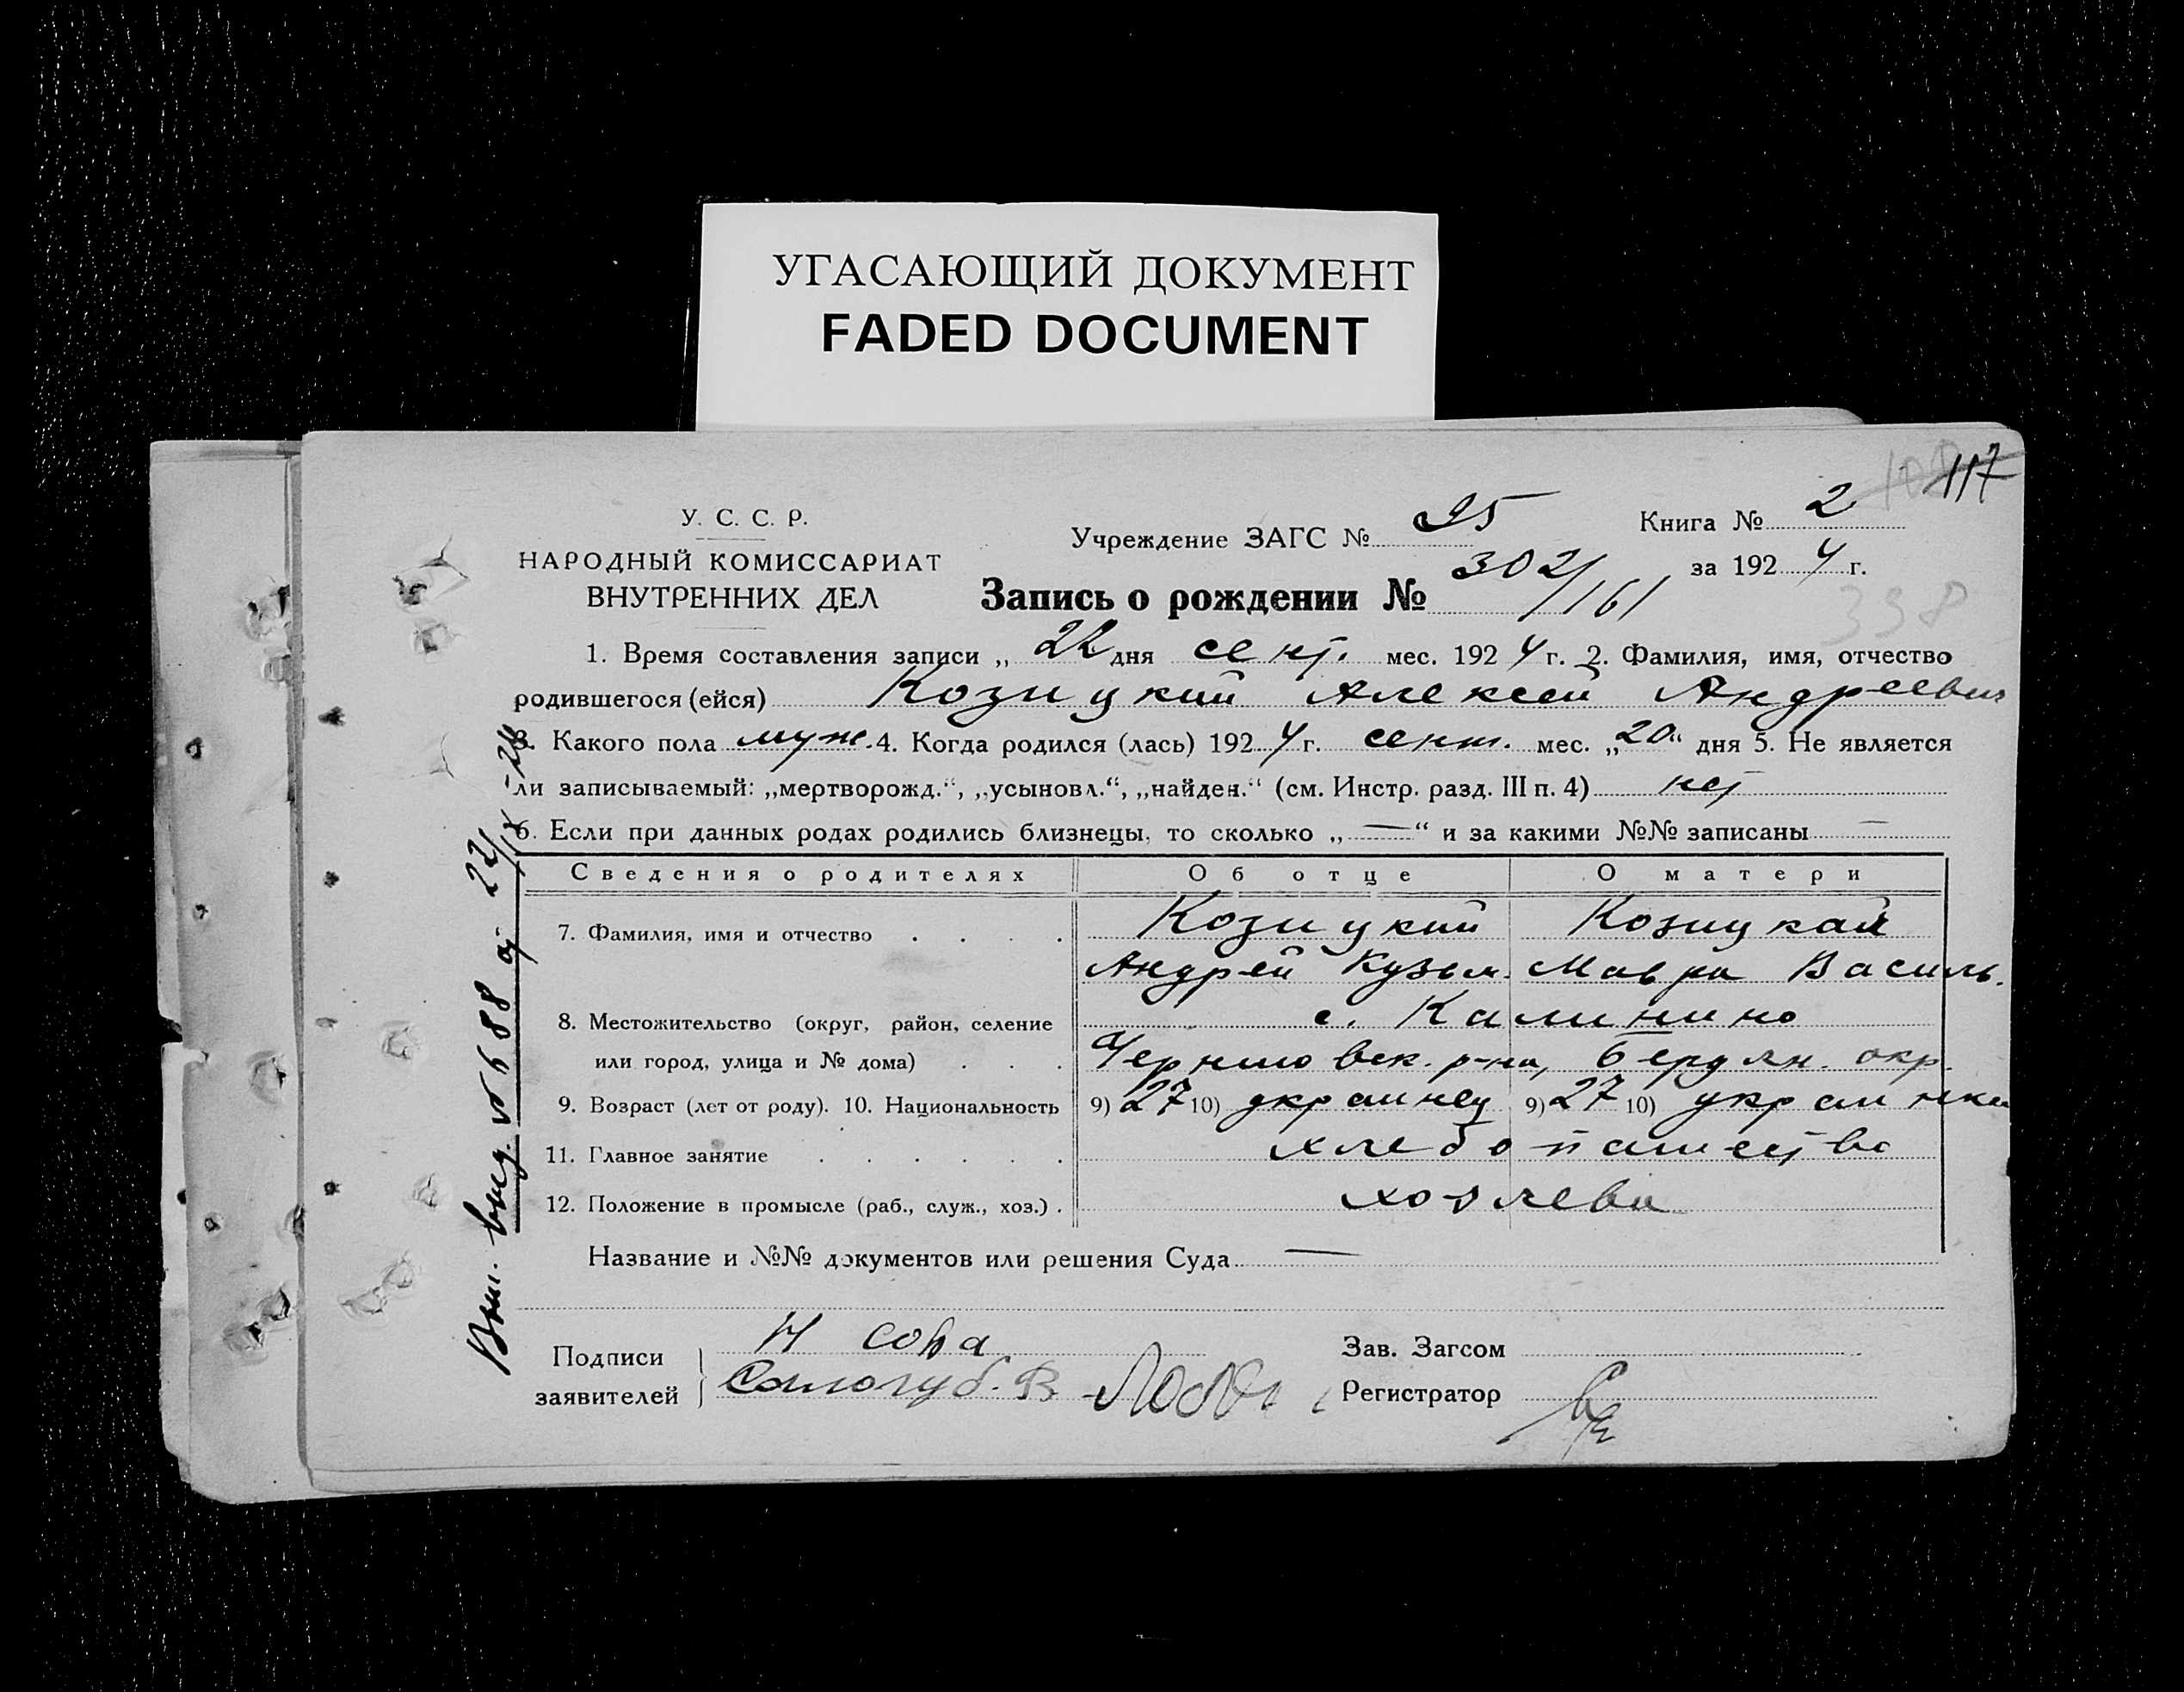 УГАСАЮЩИЙ ДОКУМЕНТ
FADED DOCUMENT
117
У. С. С. Р.
НАРОДНЫЙ КОМИССАРИАТ
ВНУТРЕННИХ ДЕЛ
Учреждение ЗАГС № 95
Книга № 2
за 1924 г.
Запись о рождении № 302/161
338
1. Время составления записи „ 22 дня сент. мес. 1924 г. 2. Фамилия, имя, отчество
родившегося (ейся) Козицкий Алексей Андреевич
3. Какого пола муж. 4. Когда родился (лась) 1924 г. сент. мес. „20“ дня 5. Не является
ли записываемый: „мертворожд.“, „усыновл.“, „найден.“ (см. Инстр. разд. III п. 4) нет
6. Если при данных родах родились близнецы, то сколько „—“ и за какими №№ записаны —
Сведения о родителях Об отце О матери
7. Фамилия, имя и отчество . . . . Козицкий Козицкая
Андрей Кузьм. Мавра Василь.
8. Местожительство (округ, район, селение с. Калинино
или город, улица и № дома) . . . Черниговск. р-на, Бердян. окр.
9. Возраст (лет от роду). 10. Национальность 9) 27 10) украинец 9) 27 10) украинка
11. Главное занятие . . . . . . хлебопашество
12. Положение в промысле (раб., служ., хоз.) . хозяева
Название и №№ документов или решения Суда —
Подписи
заявителей
Н сова
Сологуб. В
Зав. Загсом
Регистратор
Вып. выд. № 688 от 22/IX-24